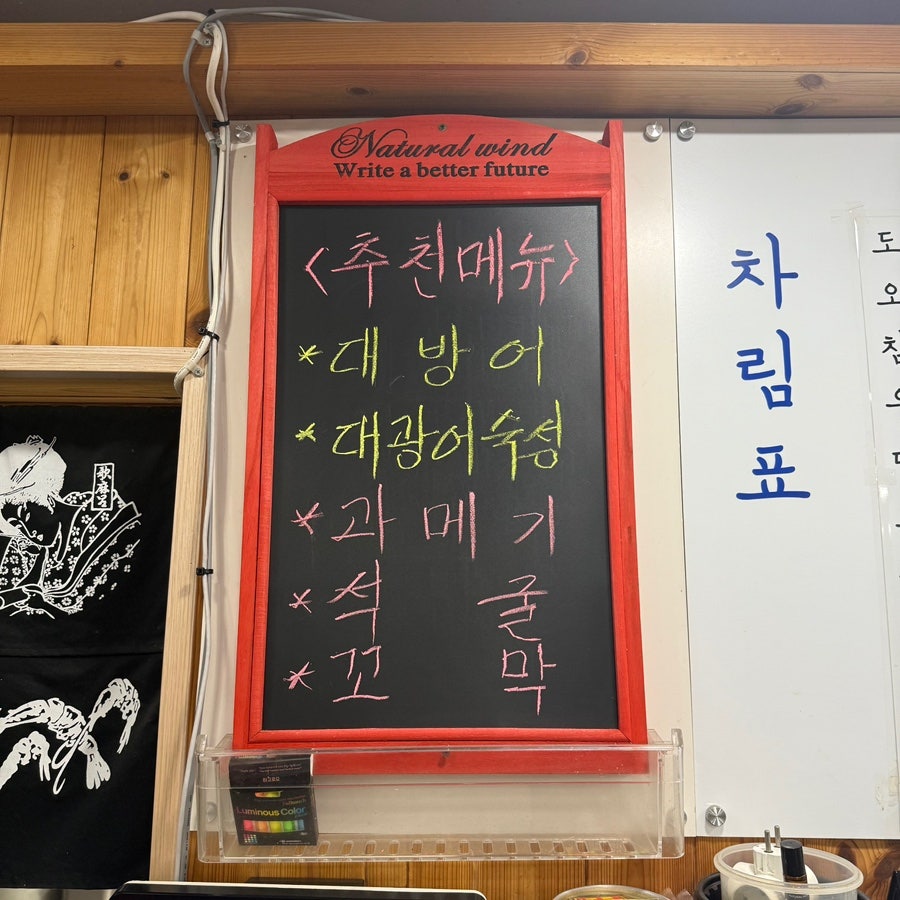 Natural wind
Write a better future
<추천메뉴>
* 대방어
* 대광어숙성
* 과메기
* 석굴
* 꼬막
차림표
歌麿
Luminous Color